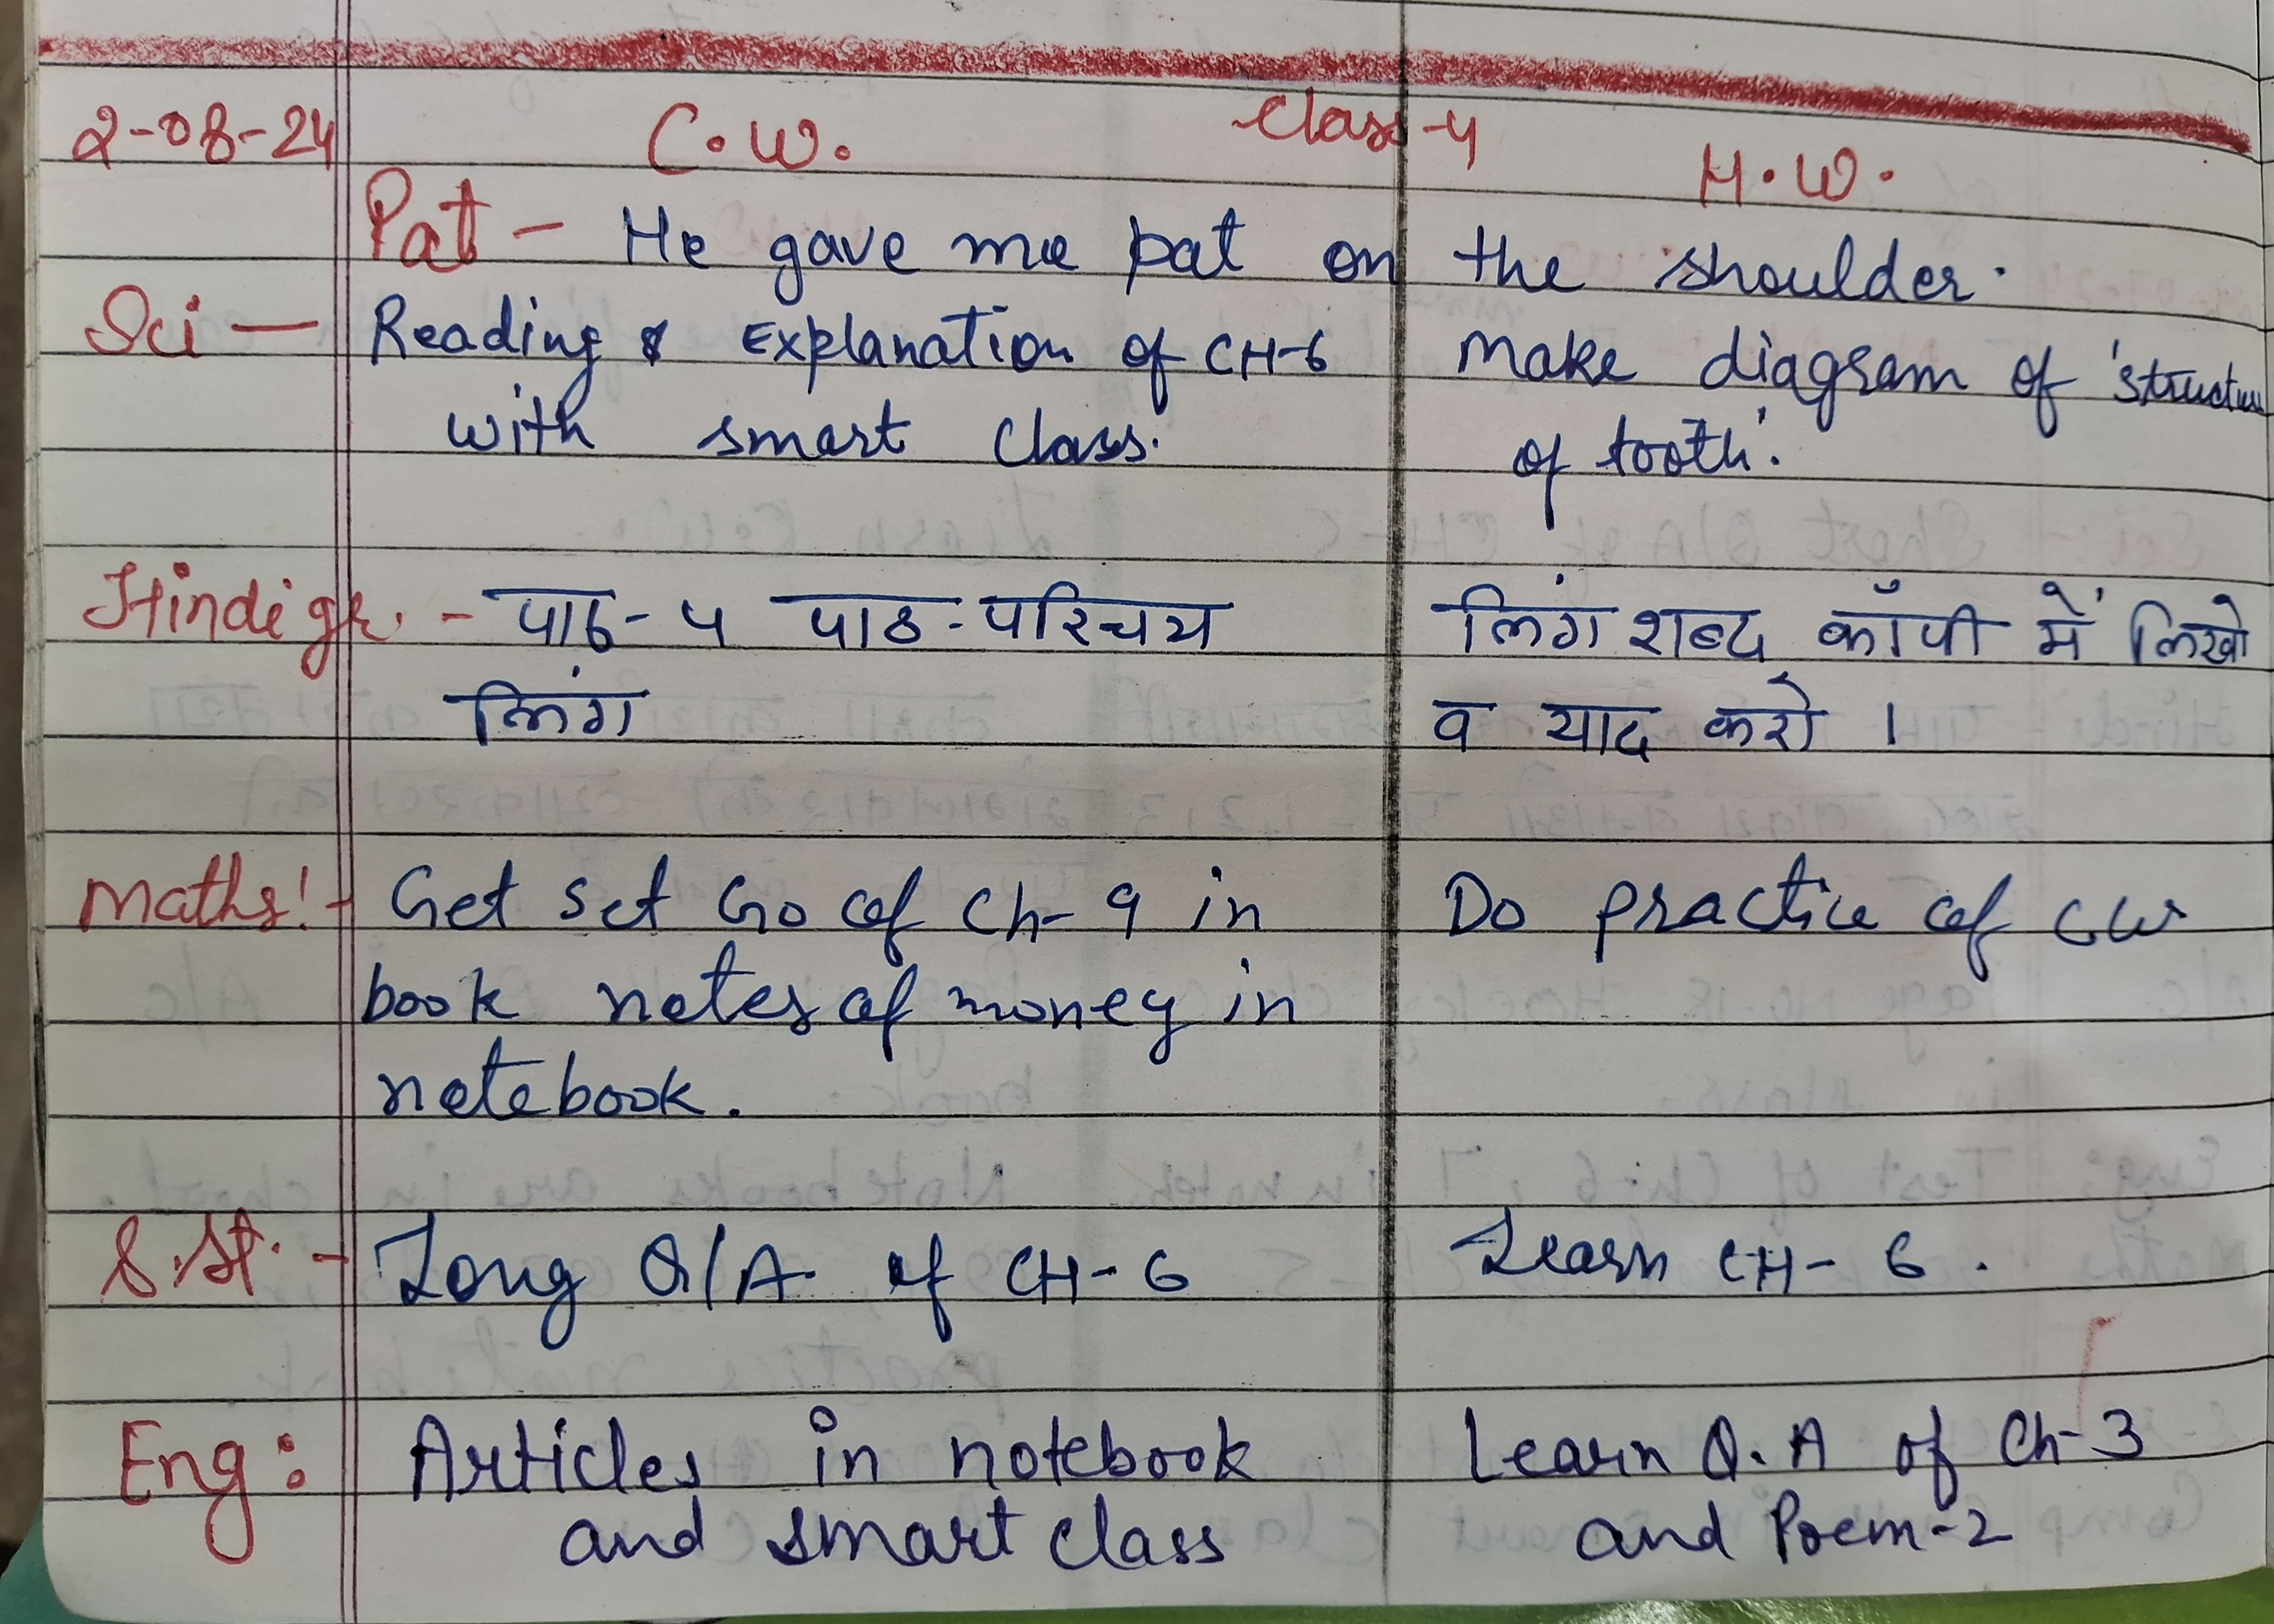 2-08-24 C.W. Class-4 H.W.
Pat - He gave me pat on the shoulder.
Sci - Reading & Explanation of CH-6 Make diagram of 'structure
with smart class. of tooth'.
Hindi gr. - पाठ-५ पाठ-परिचय लिंग शब्द कॉपी में लिखो
लिंग व याद करो ।
Maths:- Get set Go of Ch-9 in Do practice of CW
book notes of money in
notebook.
S.St. - Long Q/A. of CH-6 Learn CH-6.
Eng: Articles in notebook Learn Q.A of Ch-3
and smart class and Poem-2